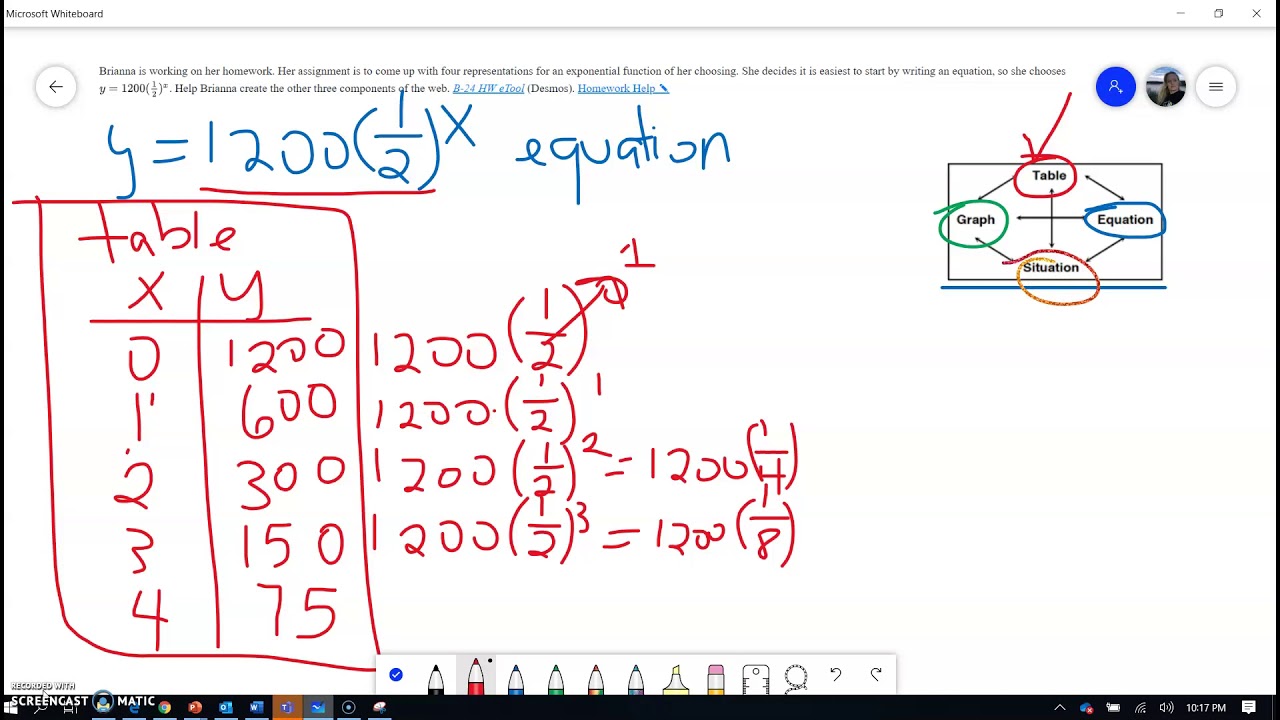 Microsoft Whiteboard
Brianna is working on her homework. Her assignment is to come up with four representations for an exponential function of her choosing. She decides it is easiest to start by writing an equation, so she chooses
y = 1200(1/2)^x. Help Brianna create the other three components of the web. B-24 HW eTool (Desmos). Homework Help
y = 1200(1/2)^x equation
Table
Graph
Equation
Situation
table
x y
0 1200 1200(1/2)^0 1
1 600 1200·(1/2)^1
2 300 1200(1/2)^2 = 1200(1/4)
3 150 1200(1/2)^3 = 1200(1/8)
4 75
RECORDED WITH
SCREENCAST MATIC
10:17 PM